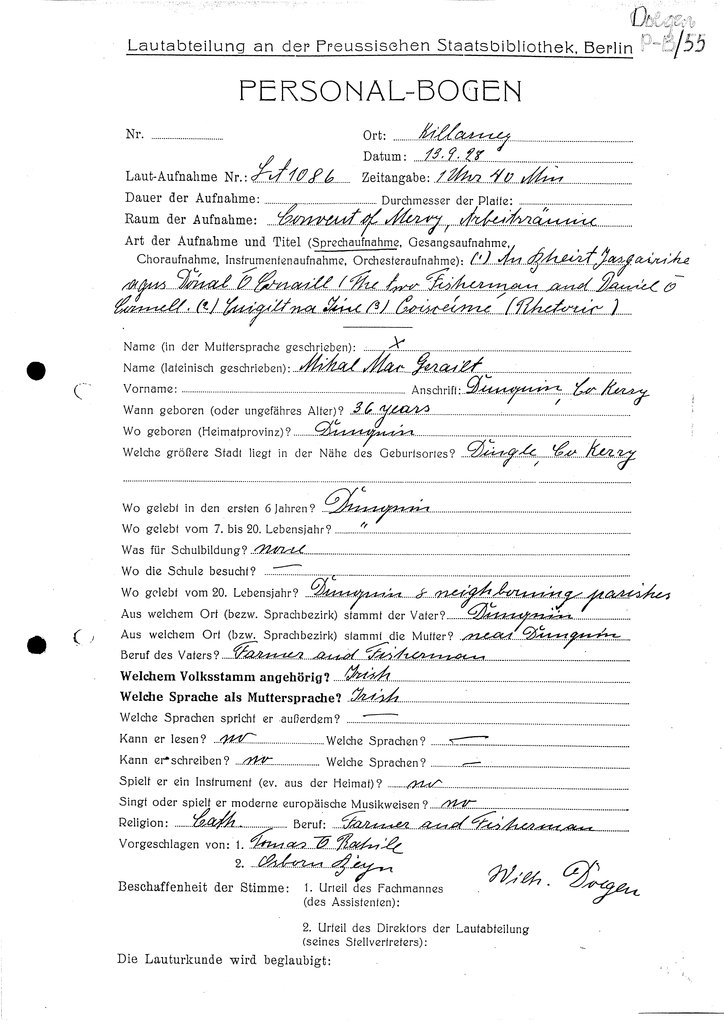 Doegen
P-B/55
Lautabteilung an der Preussischen Staatsbibliothek, Berlin
PERSONAL-BOGEN
Nr. Ort: Killarney
Datum: 13.9.28
Laut-Aufnahme Nr.: LA 1086 Zeitangabe: 1 Uhr 40 Min
Dauer der Aufnahme: Durchmesser der Platte:
Raum der Aufnahme: Convent of Mercy, Arbeitsräume
Art der Aufnahme und Titel (Sprechaufnahme, Gesangsaufnahme,
Choraufnahme, Instrumentenaufnahme, Orchesteraufnahme): (1) An Jasgairihe
agus Dónal Ó Conaill (The two Fisherman and Daniel Ó
Connell. (2) na Tine (3) Coisreime (Rhetoric)
Name (in der Muttersprache geschrieben): X
Name (lateinisch geschrieben): Mihal Mac Gerailt
Vorname: Anschrift: Dunquin, Co Kerry
Wann geboren (oder ungefähres Alter)? 36 years
Wo geboren (Heimatprovinz)? Dunquin
Welche größere Stadt liegt in der Nähe des Geburtsortes? Dingle, Co Kerry
Wo gelebt in den ersten 6 Jahren? Dunquin
Wo gelebt vom 7. bis 20. Lebensjahr? "
Was für Schulbildung? none
Wo die Schule besucht? —
Wo gelebt vom 20. Lebensjahr? Dunquin & neighborning parishes
Aus welchem Ort (bezw. Sprachbezirk) stammt der Vater? Dunquin
Aus welchem Ort (bzw. Sprachbezirk) stammt die Mutter? near Dunquin
Beruf des Vaters? Farmer and Fisherman
Welchem Volksstamm angehörig? Irish
Welche Sprache als Muttersprache? Irish
Welche Sprachen spricht er außerdem? —
Kann er lesen? no Welche Sprachen? —
Kann er schreiben? no Welche Sprachen? —
Spielt er ein Instrument (ev. aus der Heimat)? no
Singt oder spielt er moderne europäische Musikweisen? no
Religion: Cath. Beruf: Farmer and Fisherman
Vorgeschlagen von: 1. Tomas O Rahille
2. Osborn
Wilh. Doegen
Beschaffenheit der Stimme: 1. Urteil des Fachmannes
(des Assistenten):
2. Urteil des Direktors der Lautabteilung
(seines Stellvertreters):
Die Lauturkunde wird beglaubigt: